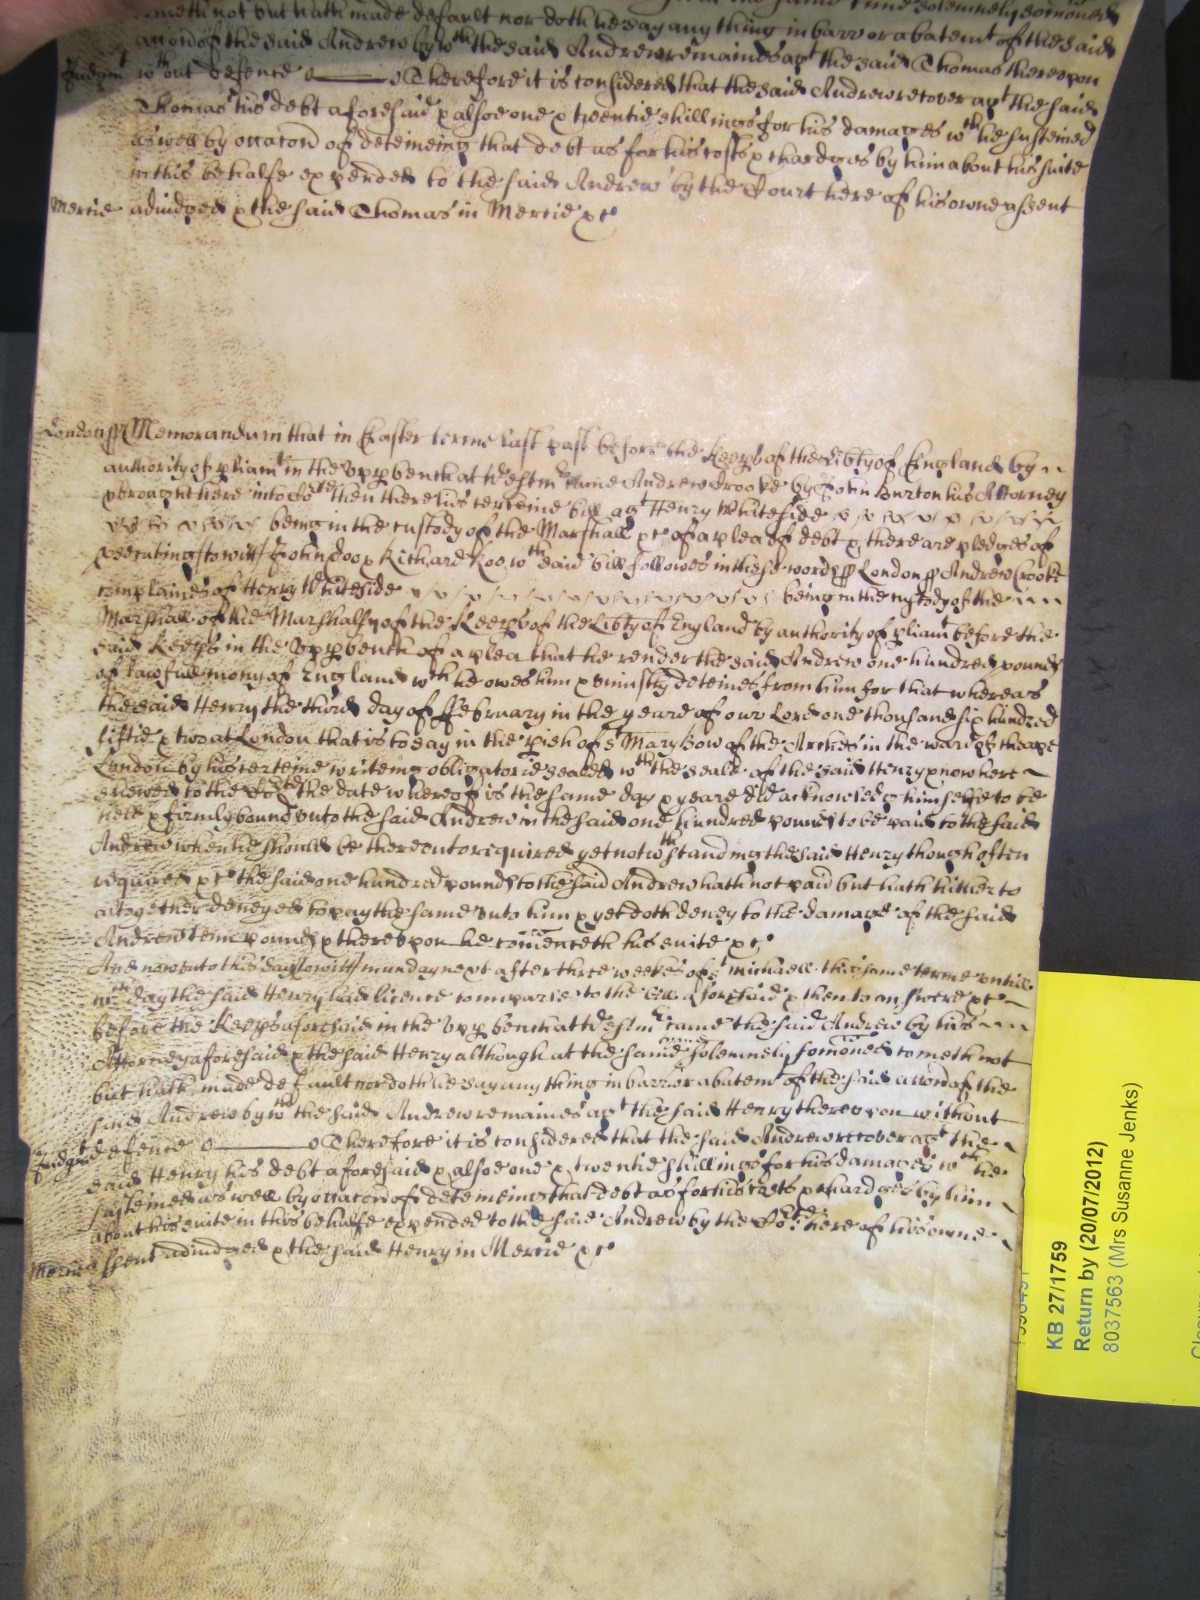 the same time solemnely somoned
cometh not but hath made default nor doth he say any thing in barr or abatemt of the said
accon of the said Andrew by wth the said Andrew remaines agt the said Thomas thereupon
Judgmt wthout defence o——o Therefore it is considered that the said Andrew recover agt the said
Thomas his debt aforesaid & alsoe one & twentie shillings for his damages wch he susteined
aswell by occacon of deteineing that debt as for his costs & chardges by him about his suite
in this behalfe expended to the said Andrew by the Court here of his owne assent
Mercie adiudged & the said Thomas in Mercie &c
London ss Memorandum that in Easter terme last past before the Keeprs of the Libty of England by
authority of pliamt in the Vpp bench at Westmr came Andrew Crooke by John Burton his Attorney
& brought here into Cort then there his certeine bill agt Henry Whiteside
being in the custody of the Marshall &c of a plea of debt & there are pledges of
psecuting to witt John Doo & Richard Roo wch said bill followes in these words ss London ss Andrew Crooke
complaines of Henry Whiteside being in the custody of the
Marshall of the Marshalsy of the Keeprs of the Libty of England by authority of pliamt before the
said Keeprs in the Vpp bench of a plea that he render the said Andrew one hundred pounds
of lawfull mony of England wch he owes him & uniustly deteines from him for that whereas
the said Henry the third day of February in the yeare of our Lord one thousand six hundred
fiftie & two at London that is to say in the pish of St Mary Bow of the Arches in the ward of Cheape
London by his certeine writeing obligatorie sealed wth the seale of the said Henry & now here
shewed to the Cort the date whereof is the same day & yeare did acknowledg himselfe to be
held & firmly bound vnto the said Andrew in the said one hundred pounds to be paid to the said
Andrew when he should be thereunto required yet notwthstanding the said Henry though often
required &c the said one hundred pounds to the said Andrew hath not paid but hath hitherto
altogether denyed to pay the same vnto him & yet doth deney to the damage of the said
Andrew tenn pounds & therevpon he comenceth his suite &c
And now vnto this day to witt munday next after three weekes of St Michaell this same terme vntill
wch day the said Henry had licence to imparle to the bill aforesaid & then to answere &c
before the Keeprs aforesaid in the Vpp bench at Westmr came the said Andrew by his
Attorney aforesaid & the said Henry although at the same solemnely somoned cometh not
but hath made default nor doth he say any thing in barr or abatemt of the said accon of the
said Andrew by wch the said Andrew remaines agt the said Henry therevpon without
Judgmt defence o——o Therefore it is considered that the said Andrew recover agt the
said Henry his debt aforesaid & alsoe one & twentie shillings for his damages wch he
susteined aswell by occacon of deteineing that debt as for his costs & chardges by him
about his suite in this behalfe expended to the said Andrew by the Cort here of his owne
Mercie assent adiudged & the said Henry in Mercie &c
KB 27/1759
Return by (20/07/2012)
8037563 (Mrs Susanne Jenks)